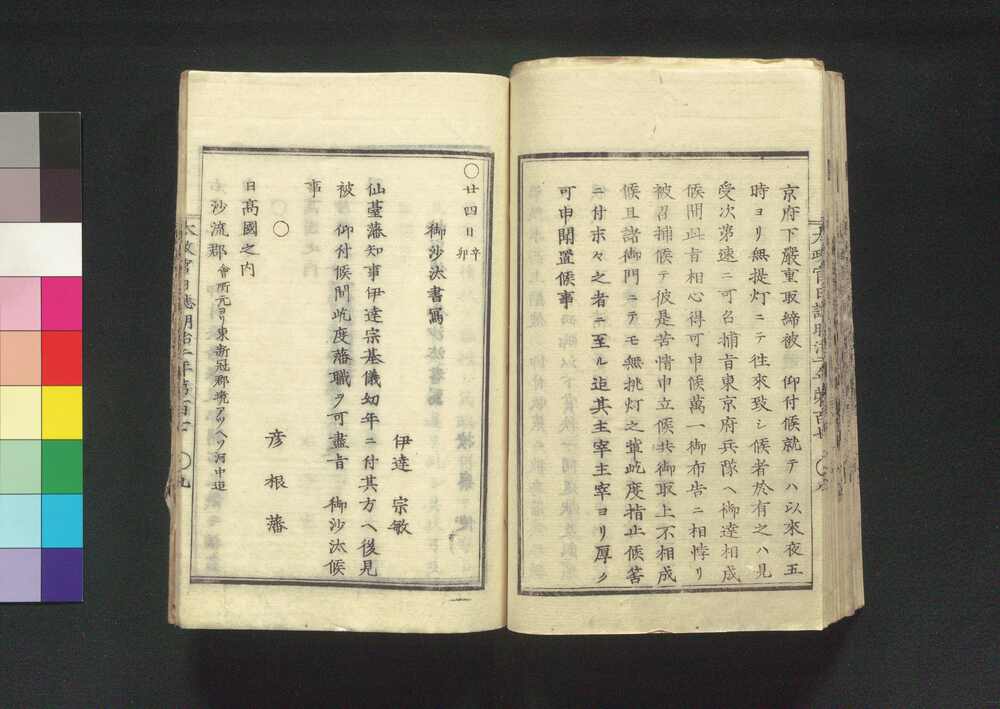 京府下嚴重取締被　仰付候就テハ以來夜五
時ヨリ無提灯ニテ往來致シ候者於有之ハ見
受次第速ニ可召捕旨東京府兵隊ヘ御達相成
候間此旨相心得可申候萬一御布告ニ相悖リ
被召捕候テ彼是苦情申立候共御取上不相成
候且諸御門ニテモ無挑灯之輩屹度指止候筈
ニ付末々之者ニ至ル迄其主宰主宰ヨリ厚ク
可申聞置候事
○廿四日辛卯
御沙汰書寫
伊達　宗敏
仙䑓藩知事伊達宗基儀幼年ニ付其方ヘ後見
被　仰付候間屹度藩職ヲ可盡旨　御沙汰候
事
○
彦根藩
日髙國之内
沙流郡會所元ヨリ東新冠郡境アツヘツ河中迄
太政官日誌明治二年第百七　○九